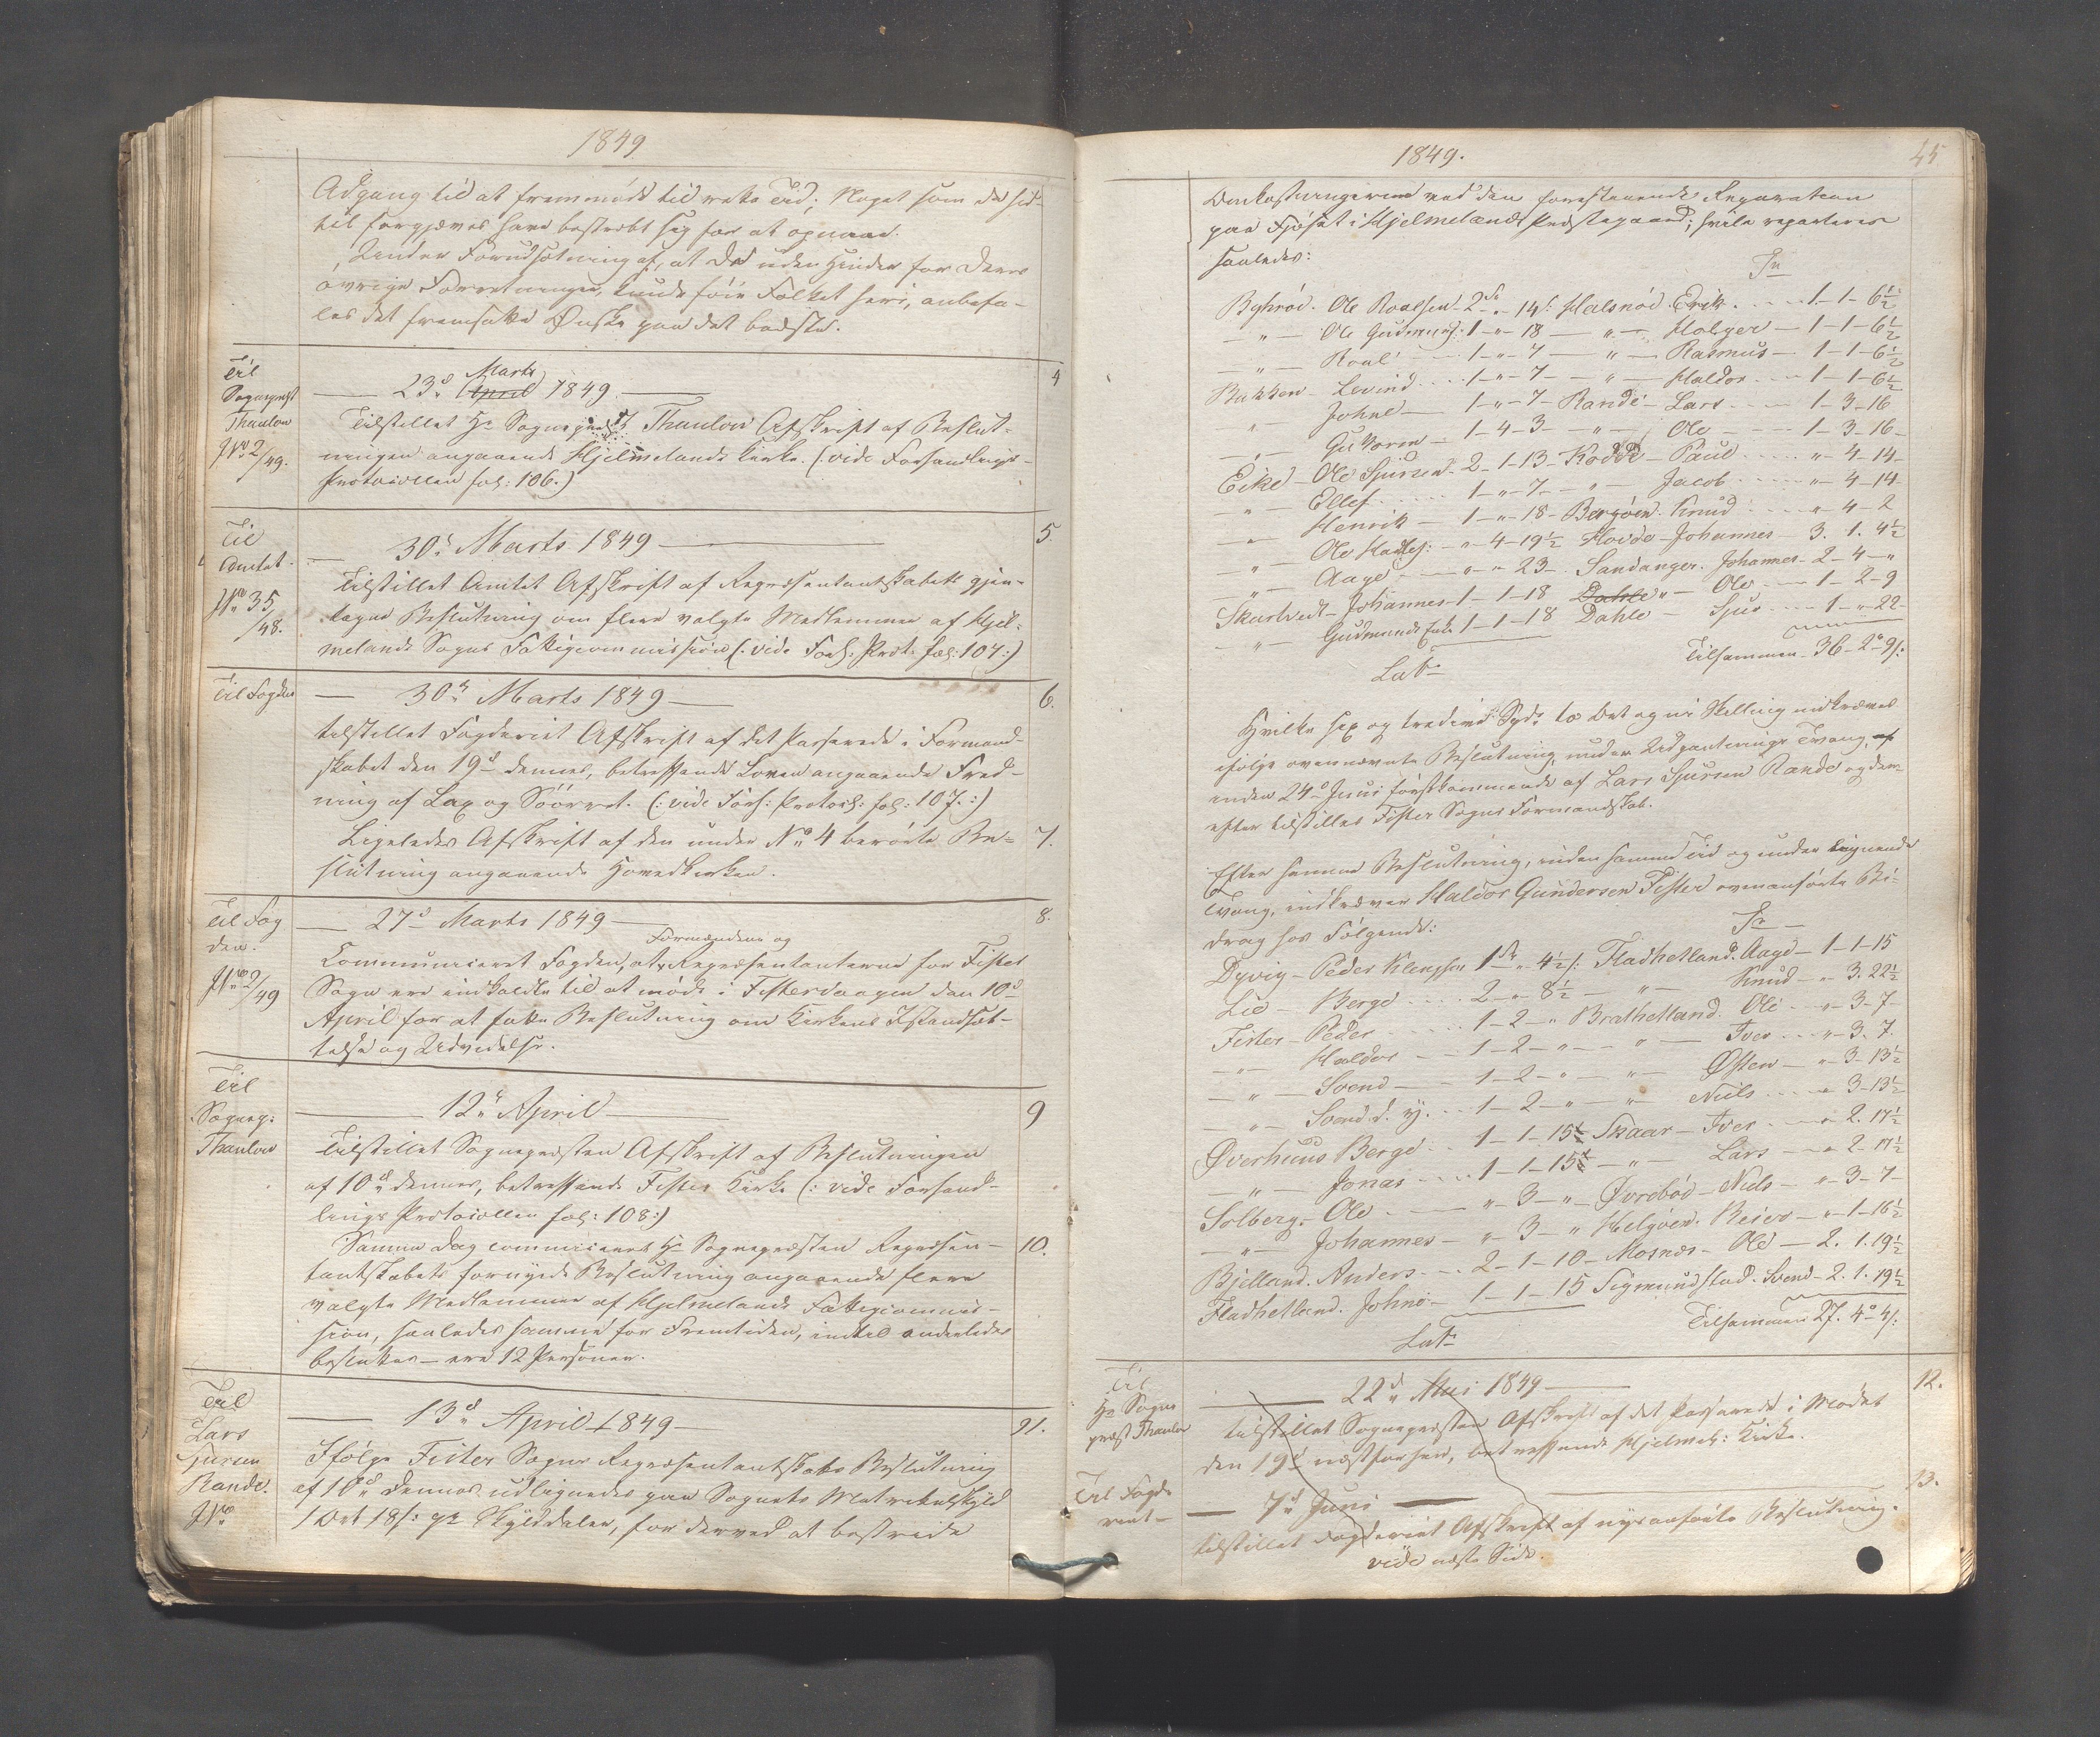 1849
Adgang til at fremmøde til rette Tid; Noget som de hid-
til forgjæves have bestræbt sig for at opnaae.
Under Forudsætning af, at De uden Hinder for Deres
øvrige Forretninger, kunde føie Folket heri, anbefa-
les det fremsatte Ønske paa det bedste.
Til
Sogneprest
Thaulow
JNo 2/49.
Marts
23d April 1849
4
Tilstillet Hr Sogneprest Thaulow Afskrift af Beslut-
ningen angaaende Hjelmelands Kirke. (: vide Forhandlings-
Protocollen fol: 106.)
Til
Amtet.
JNo 35/48.
30d Marts 1849
5.
Tilstillet Amtet Afskrift af Repræsentantskabets gjen-
tagne Beslutning om flere valgte Medlemmer af Hjel-
melands Sogns Fattigcommission (: vide Forh: Prot: fol: 107:)
Til Fogden
30d Marts 1849
6.
tilstillet Fogderiet Afskrift af det Passerede i Formand-
skabet den 19d dennes, betreffende Loven angaaende Fred-
ning af Lax og Søørret. (: vide Forh: Protocl: fol: 107.:)
Ligeledes Afskrift af den under No 4 berørte Be-
7.
slutning angaaende Hovedkirken.
Til Fog
den.
JNo 2/49
27d Marts 1849
8.
Formændene og
Communiceret Fogden, at Repræsentanterne for Fister
Sogn ere indkaldte til at møde i Fistervaagen den 10d
April for at fatte Beslutning om Kirkens Istandsæt-
telse og Udvidelse.
Til
Sognep:
Thaulow
12d April
9
Tilstillet Sognepresten Afskrift af Beslutningen
af 10d dennes, betreffende Fister Kirke (: vide Forhand-
lings Protocollen fol: 108:)
Samme Dag communiceret Hr Sognepresten Repræsen-
10.
tantskabets fornyede Beslutning angaaende flere
valgte Medlemmer af Hjelmelands Fattigcommis-
sion, saaledes samme for Fremtiden, indtil anderledes
besluttes – ere 12 Personer.
Til
Lars
Sjursen
Rande.
JNo
13d April 1849
11.
Ifølge Fister Sogns Repræsentantskabs Beslutning
af 10d dennes udlignedes paa Sognets Matrikulskyld
1 Ort 18 s: pr Skylddaler, for derved at bestride
1849.
45
Omkostningerne ved den forestaaende Reparation
paa Fjøset i Hjelmelands Prestegaard; hvilke reparteres
saaledes:
Tr
Byhrød. Ole Roalsen 2 Sp - " - 14 s: Halsnød. Erik. 1-1-6½
- " - Ole Gudmunds: 1-"-18 - " - Holger - 1-1-6½
- " - Roal 1-"-7 - " - Rasmus - 1-1-6½
Bakken - Levind 1-"-7 - " - Haldor 1-1-6½
" - Johne 1-"-7 - Rande - Lars 1-3-16
- " - Guttorm - 1-4-3 - " - Ole 1-3-16
Eike - Ole Sjursen 2-1-13 - Kodde - Paul "-4-14
- " - Ellef 1-"-7 - " - Jacob "-4-14
- " - Henrik - 1-"-18 - Bergøen. Knud "-4-2
- " - Ole Hadlej: - "-4-19½ Hovde - Johannes - 3. 1. 4½
- " - Aage "-"-23 - Sandanger. Johannes - 2-4-"
Skartvedt - Johannes 1-1-18 Dahle " - Ole 1-2-9
- " - Gudmunds Enke 1-1-18 Dahle - Sjur 1-"-22
Lat
Tilsammen 36-2o-9 s:
Hvilke sex og tredive Spd: to Ort og ni Skilling indkræves
ifølge ovennævnte Beslutning under Udpantnings Tvang, af
inden 24d Juni førstkommende af Lars Sjursen Rande og der-
efter tilstilles Fister Sogns Formandskab.
Efter samme Beslutning, inden samme Tid og under lignende
Tvang, indkræver Haldor Gundersen Fister ovenanførte Bi-
drag hos Følgende:
Tr
Dyvig - Peder Klengsen 1 Sp - " - 4½ s: Fladhetland. Aage - 1-1-15
Lie - Berge 2-"-8½ - " - Knud - " 3. 22½
Fister - Peder 1-2-" Brathetland. Ole - " 3-7-
- " - Haldor 1-2-" - " - Iver "-3. 7.
- " - Svend 1-2-" - " - Østen - " 3-13½
- " - Svend d. y. 1-2-" - " - Niels "-3-13½
Øverhuus Berge 1-1-15½ Skaar - Iver "-2. 17½
- " - Jonas 1-1-15½ - " - Lars "-2-17½
Solberg. Ole "-3-" Øvrebød - Niels - "-3-7-
- " - Johannes - "-3-" Helgøen. Reier - "-1-16½
Bjelland. Anders 2-1-10 - Mosnæs - Ole - 2. 1. 19½
Fladhetland. Johne - 1-1-15 Sigmundstad. Svend - 2. 1. 19½
Lat
Tilsammen 27. 4o 4 s:
Til
Hr Sogne
prest Thaulow
22d Mai 1849
12.
tilstillet Sognepresten Afskrift af det Passerede i Mødet
den 19d næstforhen, betreffende Hjelmel: Kirke.
Til Fogde
riet -
7d Juni
13.
tilstillet Fogderiet Afskrift af nysanførte Beslutning.
vide næste Side.